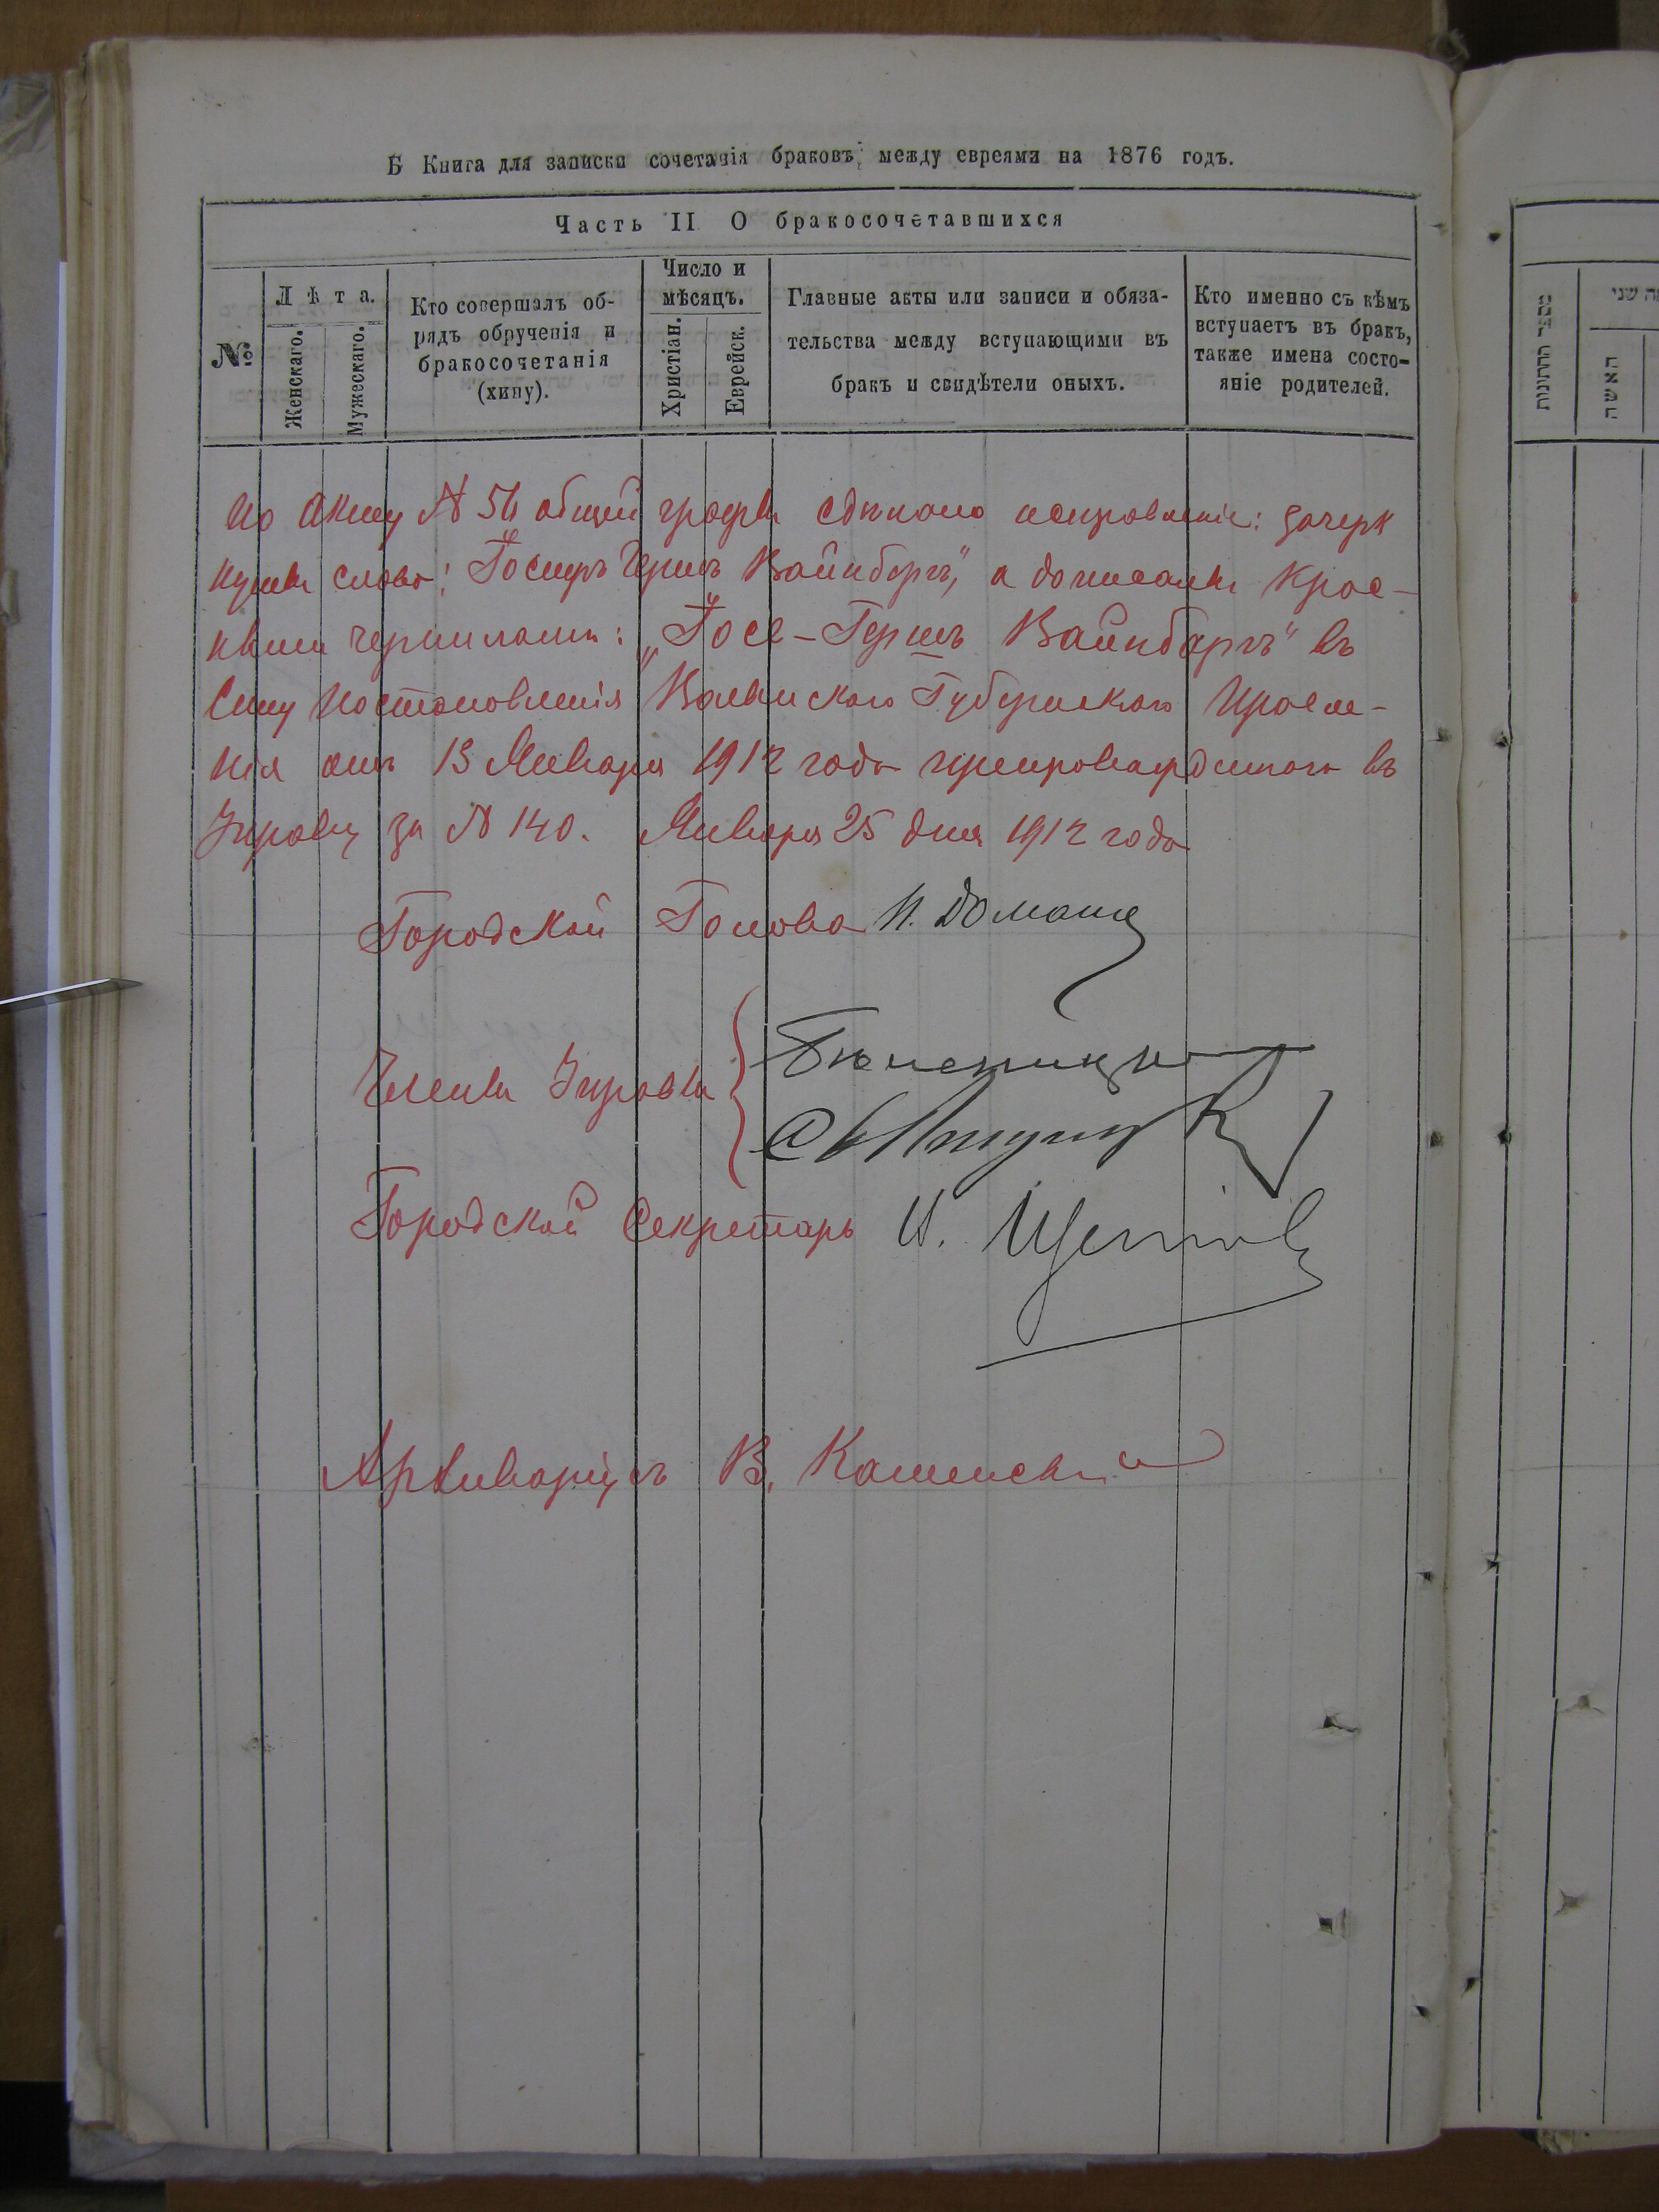 Б Книга для записки сочетанія браковъ, между евреями на 1876 годъ.
Часть II О бракосочетавшихся
№
Лѣта.
Женскаго.
Мужескаго.
Кто совершалъ об-
рядъ обрученія и
бракосочетанія
(хипу).
Число и
мѣсяцъ.
Христіан.
Еврейск.
Главные акты или записи и обяза-
тельства между вступающими въ
бракъ и свидѣтели оныхъ.
Кто именно съ кѣмъ
вступаетъ въ бракъ,
также имена состо-
яніе родителей.
По акту № 56 общей графы сдѣлано исправленіе: зачерк
нуты слова: Вайнбергъ", а дописаны крас-
ными чернилами: „Іосе-Гершъ Вайнбаргъ" въ
силу постановленія Волынского Губернского Правле-
нія отъ 13 Января 1912 года препровожденного въ
Управу за № 140. Января 25 дня 1912 года
Городской Голова
Члены Управы
Городской Секретарь
Архиваріусъ В.
מספר החתונות
האשה